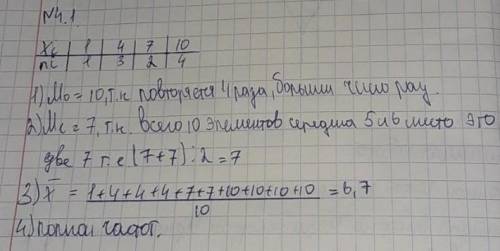 N4.1.
Xi | 1 | 4 | 7 | 10
ni | 1 | 3 | 2 | 4
1) Mo = 10, т.к повторяется 4 раза, больши число раз.
2) Me = 7, т.к. всего 10 элементов середина 5 и 6 место это
две 7 т.е (7+7):2 = 7
3) X̅ = 1+4+4+4+7+7+10+10+10+10 / 10 = 6,7
4) полигон частот.